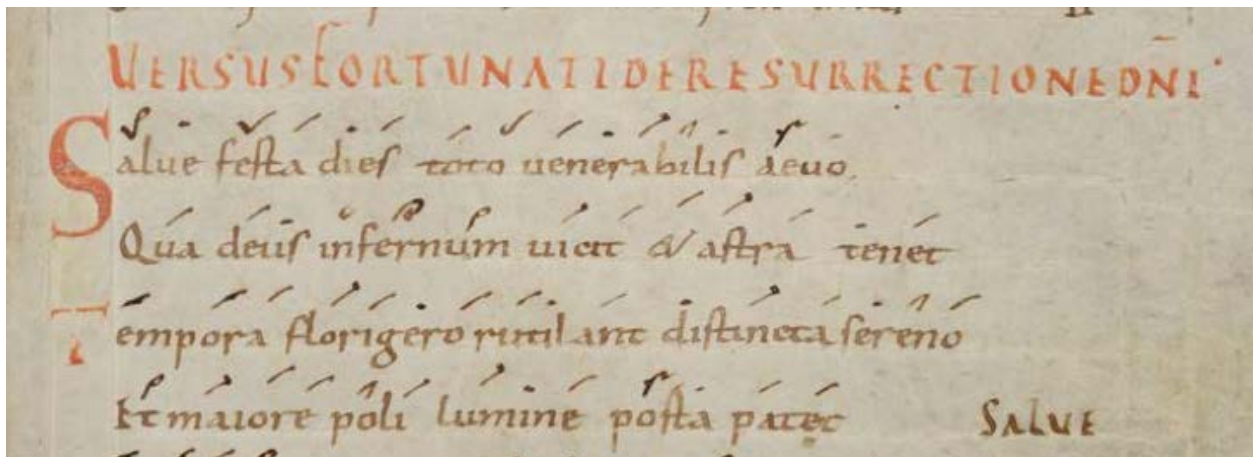 UERSUS FORTUNATI DE RESURRECTIONE DNI
Salue festa dies toto uenerabilis aeuo.
Qua deus infernum uicit & astra tenet
Tempora florigero rutilant distincta sereno
Et maiore poli lumine posta patet SALUE